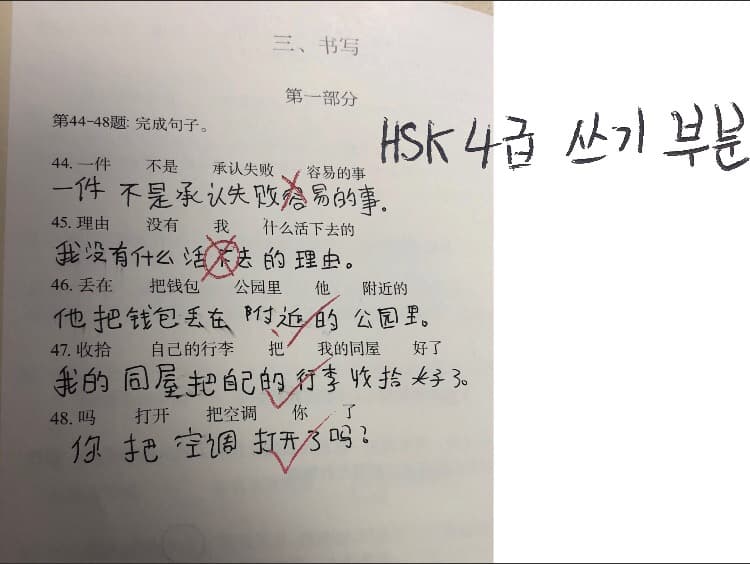 三、书写
第一部分
HSK 4급 쓰기 부분
第44-48题: 完成句子。
44. 一件 不是 承认失败 容易的事
一件 不是承认失败容易的事。
45. 理由 没有 我 什么活下去的
我没有什么活下去的理由。
46. 丢在 把钱包 公园里 他 附近的
他把钱包丢在 附近的 公园里。
47. 收拾 自己的行李 把 我的同屋 好了
我的同屋把自己的行李收拾好了。
48. 吗 打开 把空调 你 了
你把空调打开了吗?